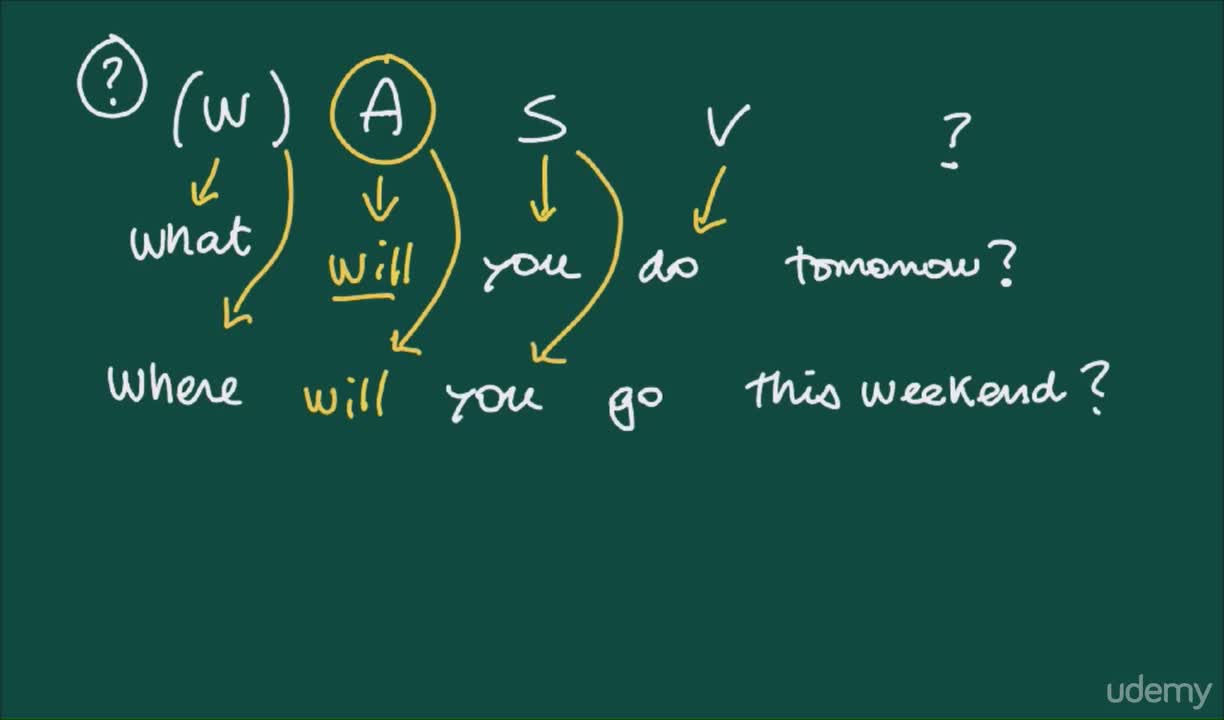 ? (W) A S V ?
what will you do tomorrow?
where will you go this weekend?
udemy